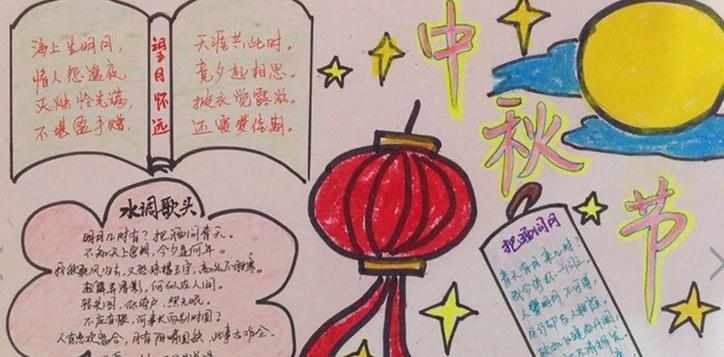 海上生明月,
情人怨遥夜,
灭烛怜光满,
不堪盈手赠,
望月怀远
天涯共此时。
竟夕起相思。
披衣觉露滋。
还寝梦佳期。
中
秋
节
水调歌头
明月几时有?把酒问青天。
不知天上宫阙,今夕是何年。
我欲乘风归去,又恐琼楼玉宇,高处不胜寒。
起舞弄清影,何似在人间。
转朱阁,低绮户,照无眠。
不应有恨,何事长向别时圆?
人有悲欢离合,月有阴晴圆缺,此事古难全。
把酒问月
青天有月来几时?
我今停杯一问之。
人攀明月不可得,
月行却与人相随。